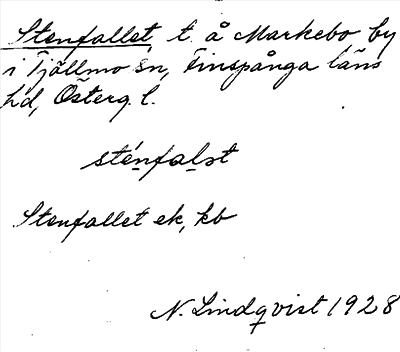 Stenfallet, t. å Markebo by
i Tjällmo sn, Finspånga läns
hd, Österg. l.
sténfalət
Stenfallet ek, kb
N. Lindqvist 1928